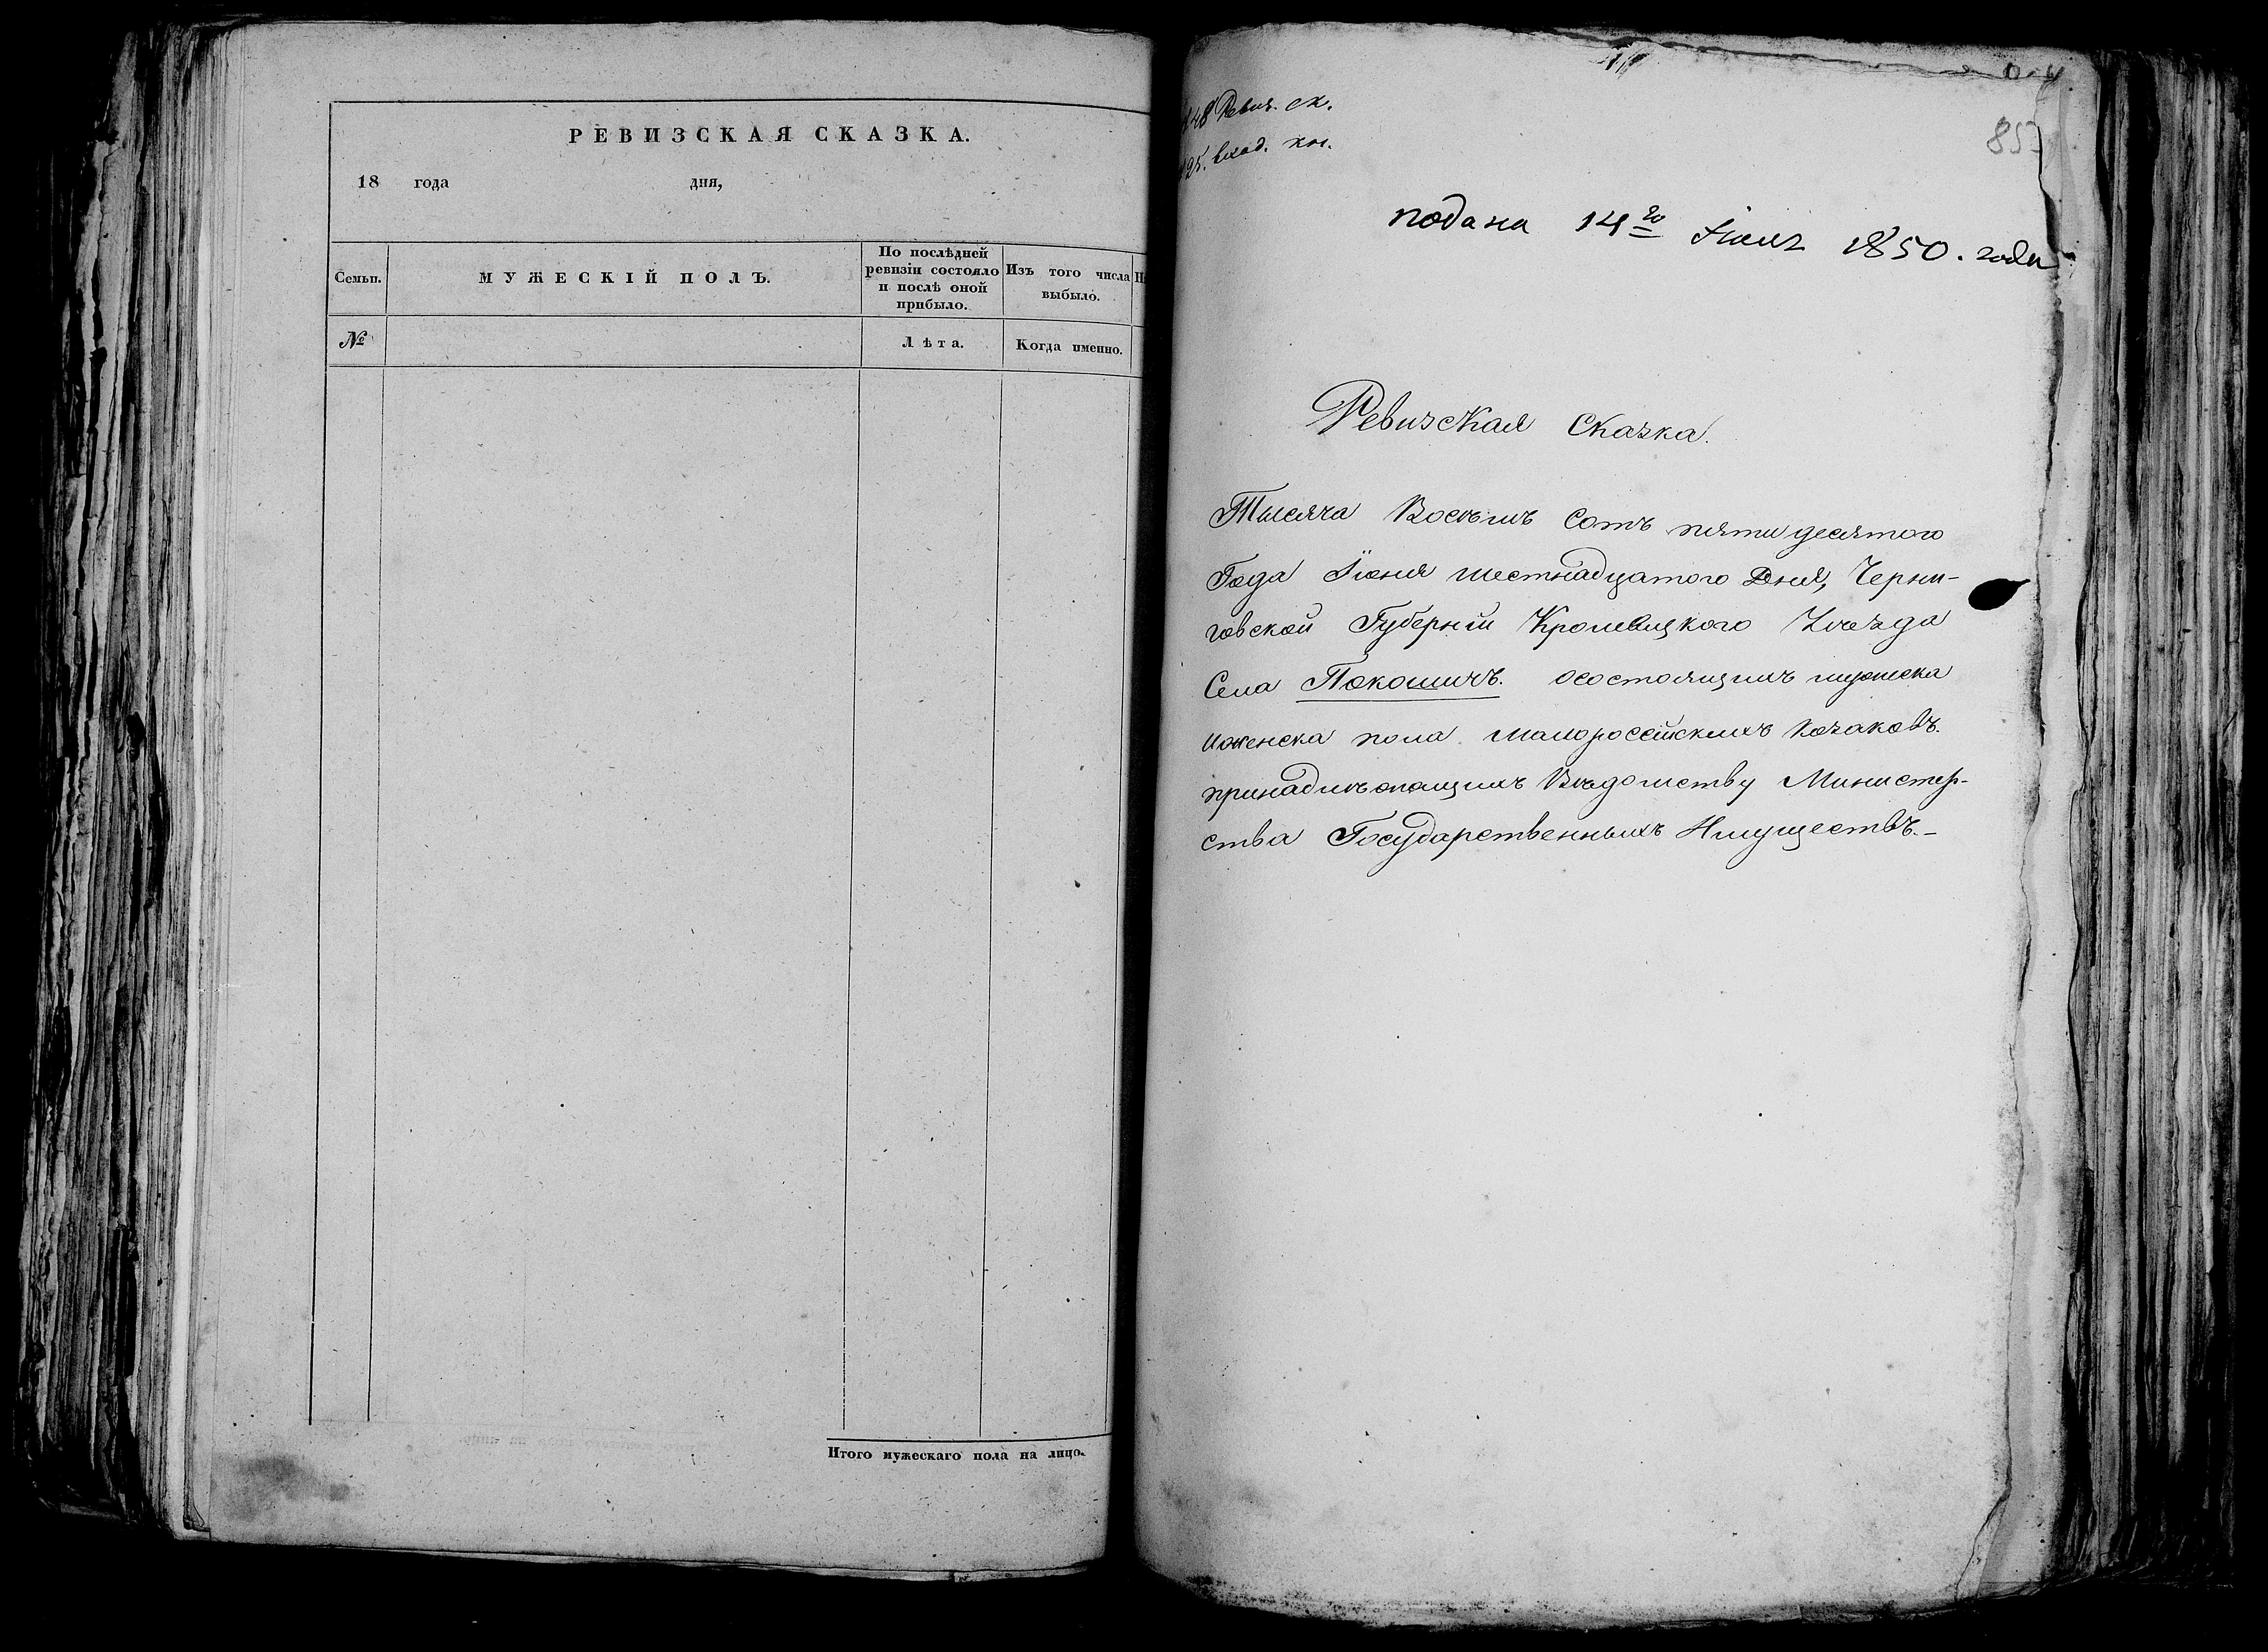 РЕВИЗСКАЯ СКАЗКА.
18 года дня,
Семьи.
МУЖЕСКІЙ ПОЛЪ.
По послѣдней
ревизіи состояло
и послѣ оной
прибыло.
Изъ того числа
выбыло.
№
Лѣта.
Когда именно.
Итого мужескаго пола на лицо.
48 Ревиз. ск.
95. вход. кн.
857
подана 14го Іюля 1850. года
Ревизская Сказка.
Тысяча Восѣмъ Сотъ пятидесятого
Года Іюня шестнадцатого Дня, Черни-
говской Губерніи Кролевицкого Уѣзда
Села Покошичъ. осостоящихъ мужеска
иженска пола малоросейскихъ Козаковъ.
принадлѣжащихъ Вѣдомству Министер-
ства Государственныхъ Имуществъ.-